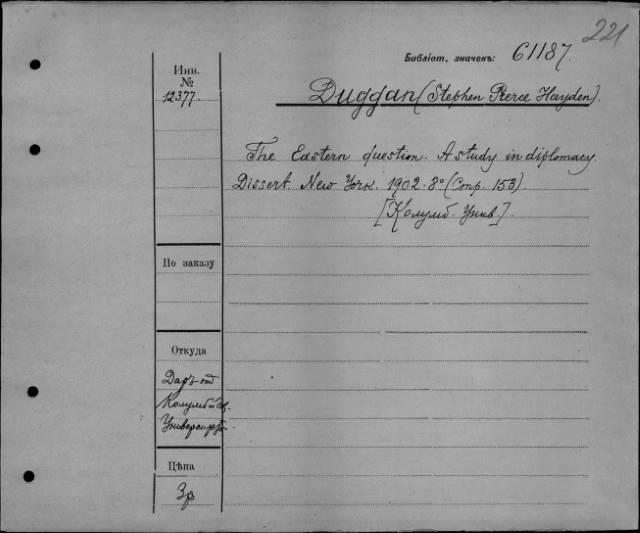 221
Библіот. значекъ: 61187.
Инв.
№
12377.
Duggan (Stephen Pierce Hayden).
The Eastern question. A study in diplomacy.
Dissert. New York. 1902. 8° (Стр. 153)
[Колумб. Унив].
По заказу
Откуда
Даръ от
Колумбійск.
Университ.
Цѣна
3р